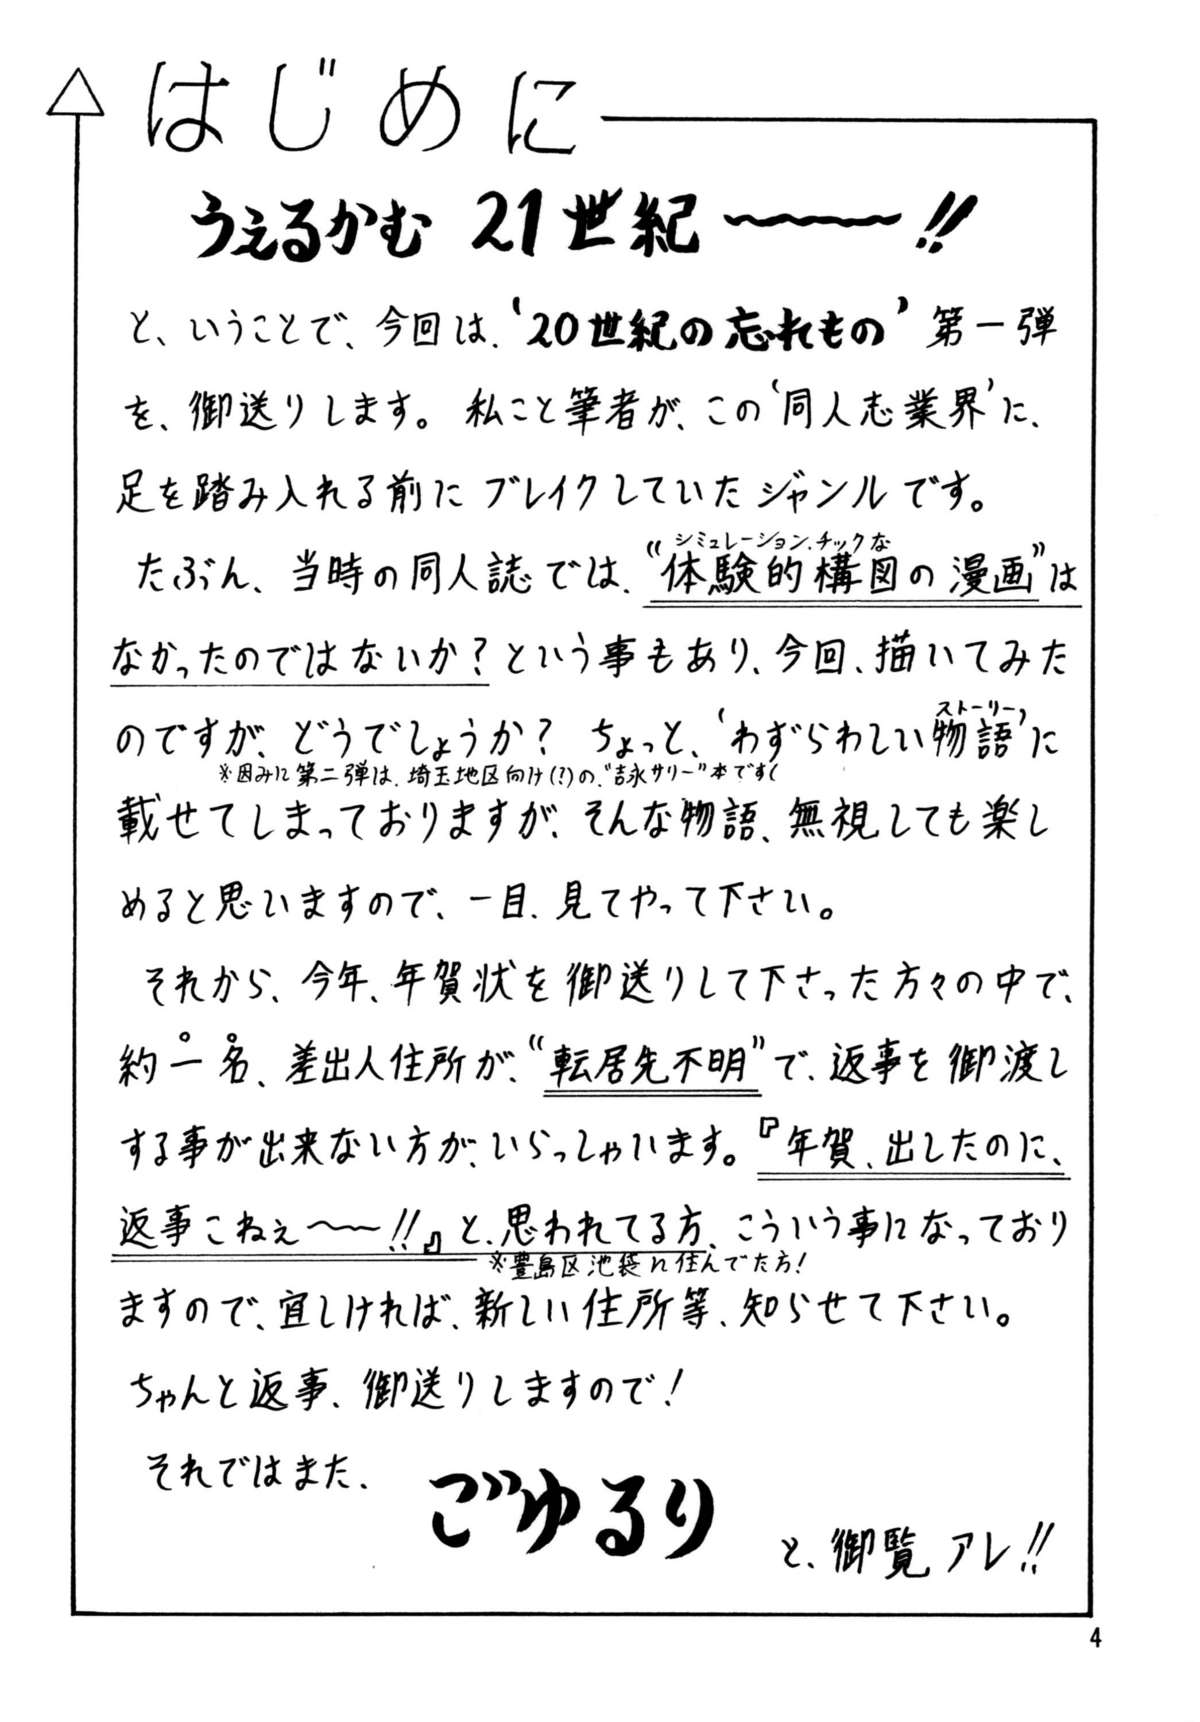 はじめに
うぇるかむ 21世紀～～!!
と、いうことで、今回は、‘20世紀の忘れもの’第一弾
を、御送りします。私こと筆者が、この‘同人志業界’に、
足を踏み入れる前にブレイクしていたジャンルです。
シミュレーション、チックな
たぶん、当時の同人誌では、“体験的構図の漫画”は
なかったのではないか？という事もあり、今回、描いてみた
ストーリー
のですが、どうでしょうか？ ちょっと、‘わずらわしい物語’に
※因みに第二弾は、埼玉地区向け(?)の、“吉永サリー”本です
載せてしまっておりますが、そんな物語、無視しても楽し
めると思いますので、一目、見てやって下さい。
それから、今年、年賀状を御送りして下さった方々の中で、
約一名、差出人住所が、“転居先不明”で、返事を御渡し
する事が出来ない方が、いらっしゃいます。『年賀、出したのに、
返事こねぇ～～!!』と、思われてる方、こういう事になっており
※豊島区池袋に住んでた方！
ますので、宜しければ、新しい住所等、知らせて下さい。
ちゃんと返事、御送りしますので！
それではまた、
ごゆるり
と、御覧アレ!!
4